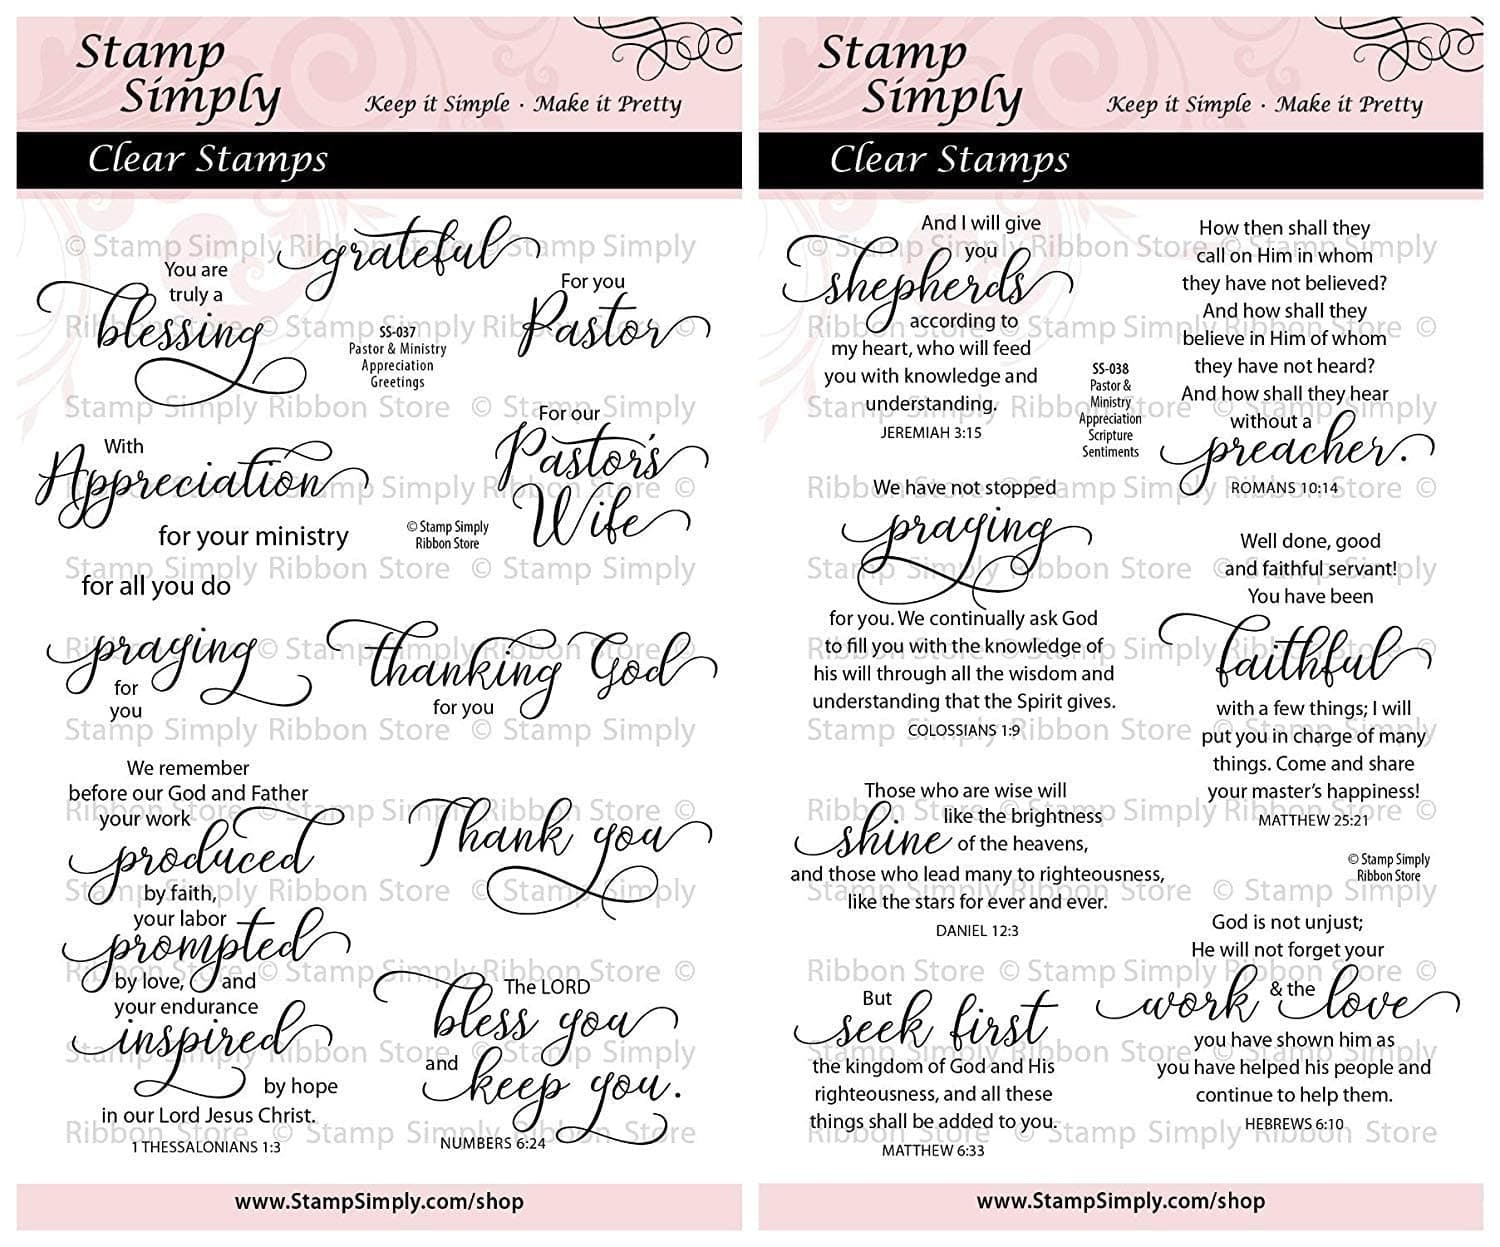 Stamp
Simply
Keep it Simple · Make it Pretty
Clear Stamps
grateful
You are
truly a
blessing
SS-037
Pastor & Ministry
Appreciation
Greetings
For you
Pastor
For our
Pastor's
Wife
With
Appreciation
for your ministry
© Stamp Simply
Ribbon Store
for all you do
praying
for
you
thanking God
for you
We remember
before our God and Father
your work
produced
by faith,
your labor
prompted
by love, and
your endurance
inspired
by hope
in our Lord Jesus Christ.
1 THESSALONIANS 1:3
Thank you
The LORD
bless you
and
keep you.
NUMBERS 6:24
www.StampSimply.com/shop
Stamp
Simply
Keep it Simple · Make it Pretty
Clear Stamps
And I will give
you
shepherds
according to
my heart, who will feed
you with knowledge and
understanding.
JEREMIAH 3:15
SS-038
Pastor &
Ministry
Appreciation
Scripture
Sentiments
How then shall they
call on Him in whom
they have not believed?
And how shall they
believe in Him of whom
they have not heard?
And how shall they hear
without a
preacher.
ROMANS 10:14
We have not stopped
praying
for you. We continually ask God
to fill you with the knowledge of
his will through all the wisdom and
understanding that the Spirit gives.
COLOSSIANS 1:9
Well done, good
and faithful servant!
You have been
faithful
with a few things; I will
put you in charge of many
things. Come and share
your master's happiness!
MATTHEW 25:21
Those who are wise will
shine like the brightness
of the heavens,
and those who lead many to righteousness,
like the stars for ever and ever.
DANIEL 12:3
© Stamp Simply
Ribbon Store
God is not unjust;
He will not forget your
work & the love
you have shown him as
you have helped his people and
continue to help them.
HEBREWS 6:10
But
seek first
the kingdom of God and His
righteousness, and all these
things shall be added to you.
MATTHEW 6:33
www.StampSimply.com/shop
© Stamp Simply Ribbon Store © Stamp Simply
Ribbon Store © Stamp Simply Ribbon Store ©